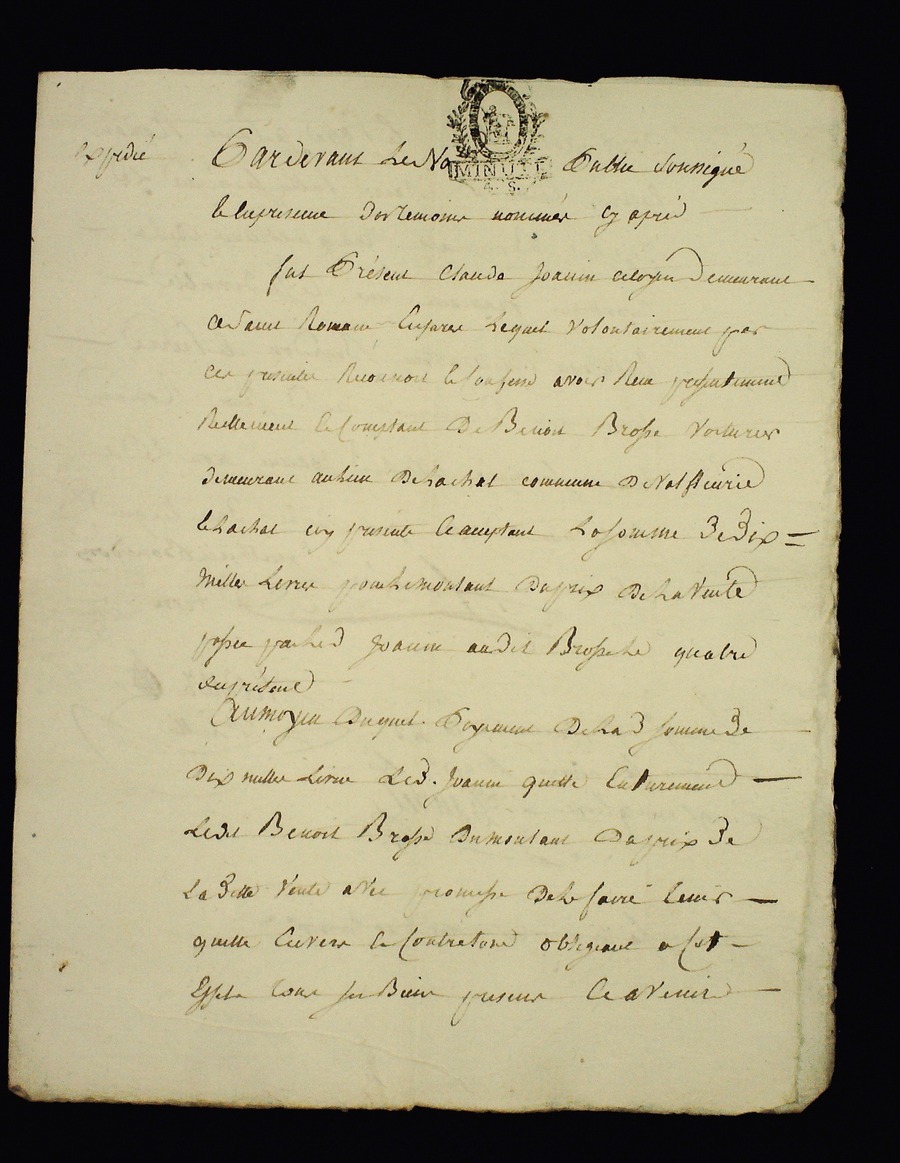 expedié
Pardevant Le No Public soussigné
MINUTE
4. S.
et en presence des temoins nommés cy après
fut Présent Claude Joanin citoyen Demeurant
a Saint Romain Lequel Volontairement par
ces presentes Reconnoit et Confesse avoir Reçu presentement
Reellement et Comptant De Benoit Brosse Voiturier
demeurant au lieu De Lachat commune De Valfleurie
le Lachat icy presente et acceptant La somme De Dix =
Milles Livres pour Le montant Du prix De La Vente
passée par Led Joanin au Dit Brosse Le quatre
du présent
Au moyen Du quel Payement De La D somme De
Dix milles Livres Le D. Joanin quitte Entierement
Le dit Benoit Brosse Du montant Du prix De
La Ditte Vente avec promesse De Le faire tenir
quitte Envers et Contre tous obligeant a Cet
Effet tous ses Biens presens et avenir